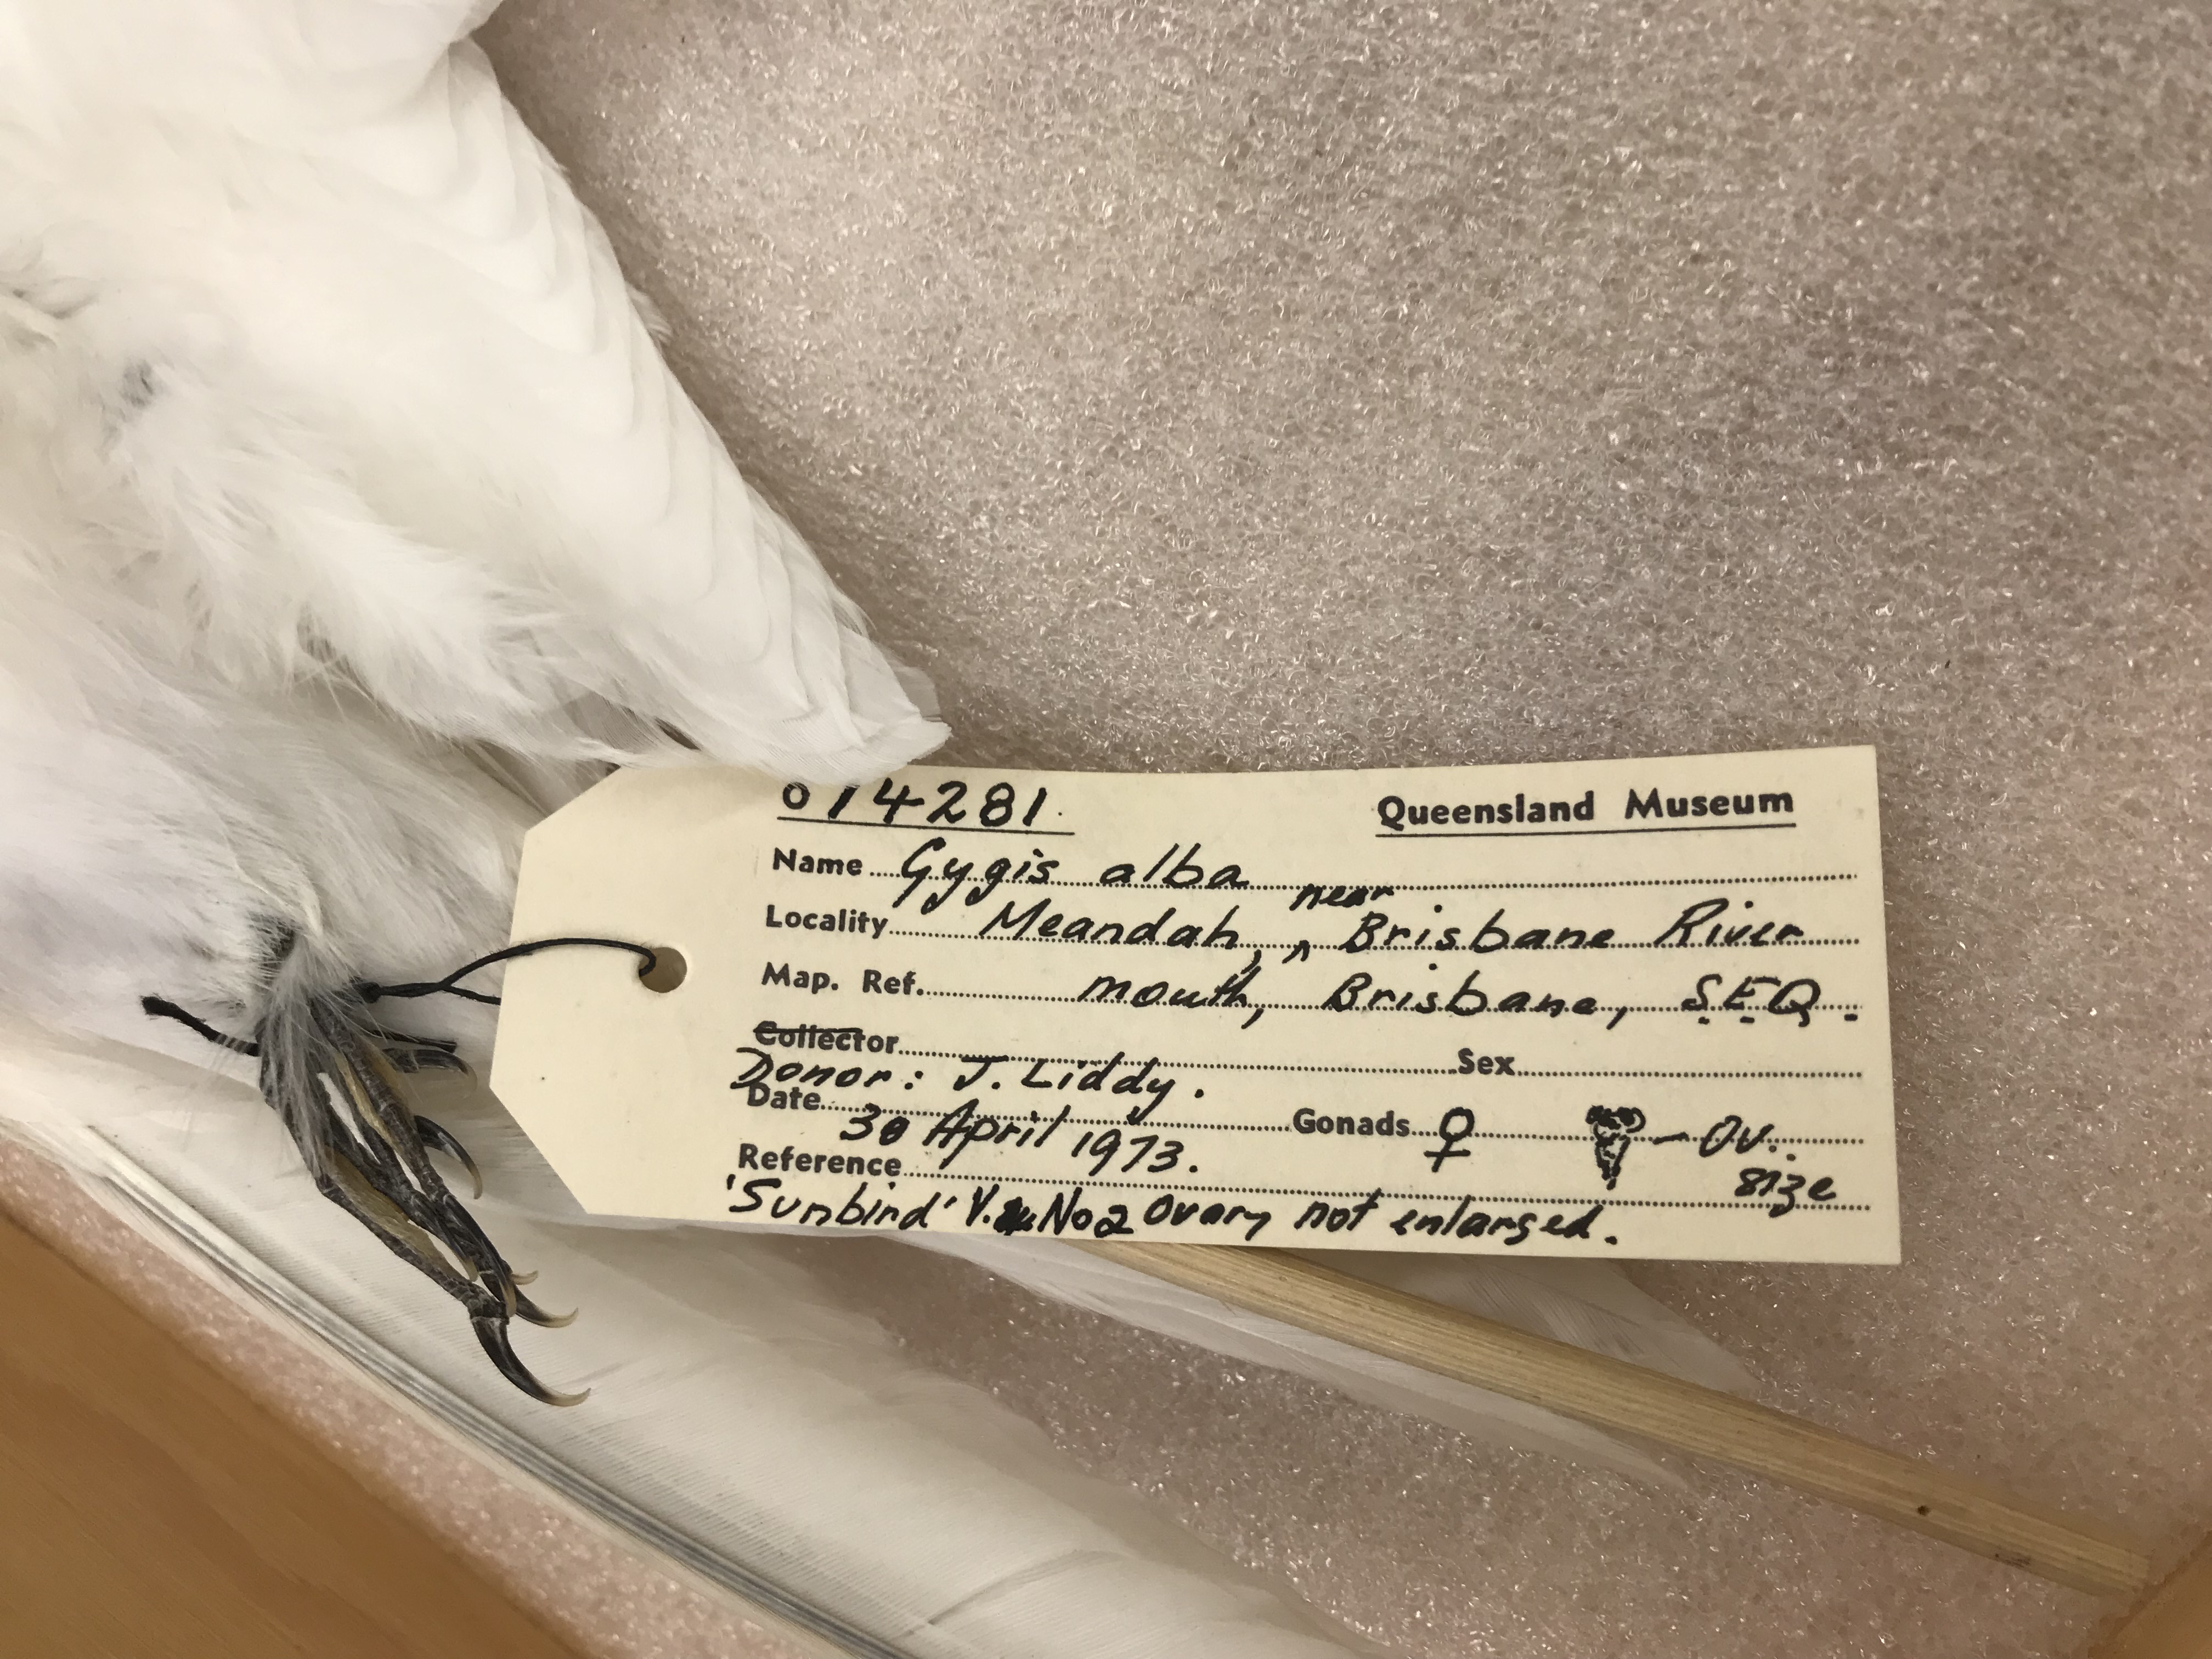 O 14281 Queensland Museum
Name Gygis alba near
Locality Meandah, n Brisbane River
Map. Ref. mouth, Brisbane, S.E.Q.
Collector Sex
Donor: J. Liddy.
Date 30 April 1973. Gonads ♀ Ov. size
Reference
'Sunbird' V. No2 Ovary not enlarged.